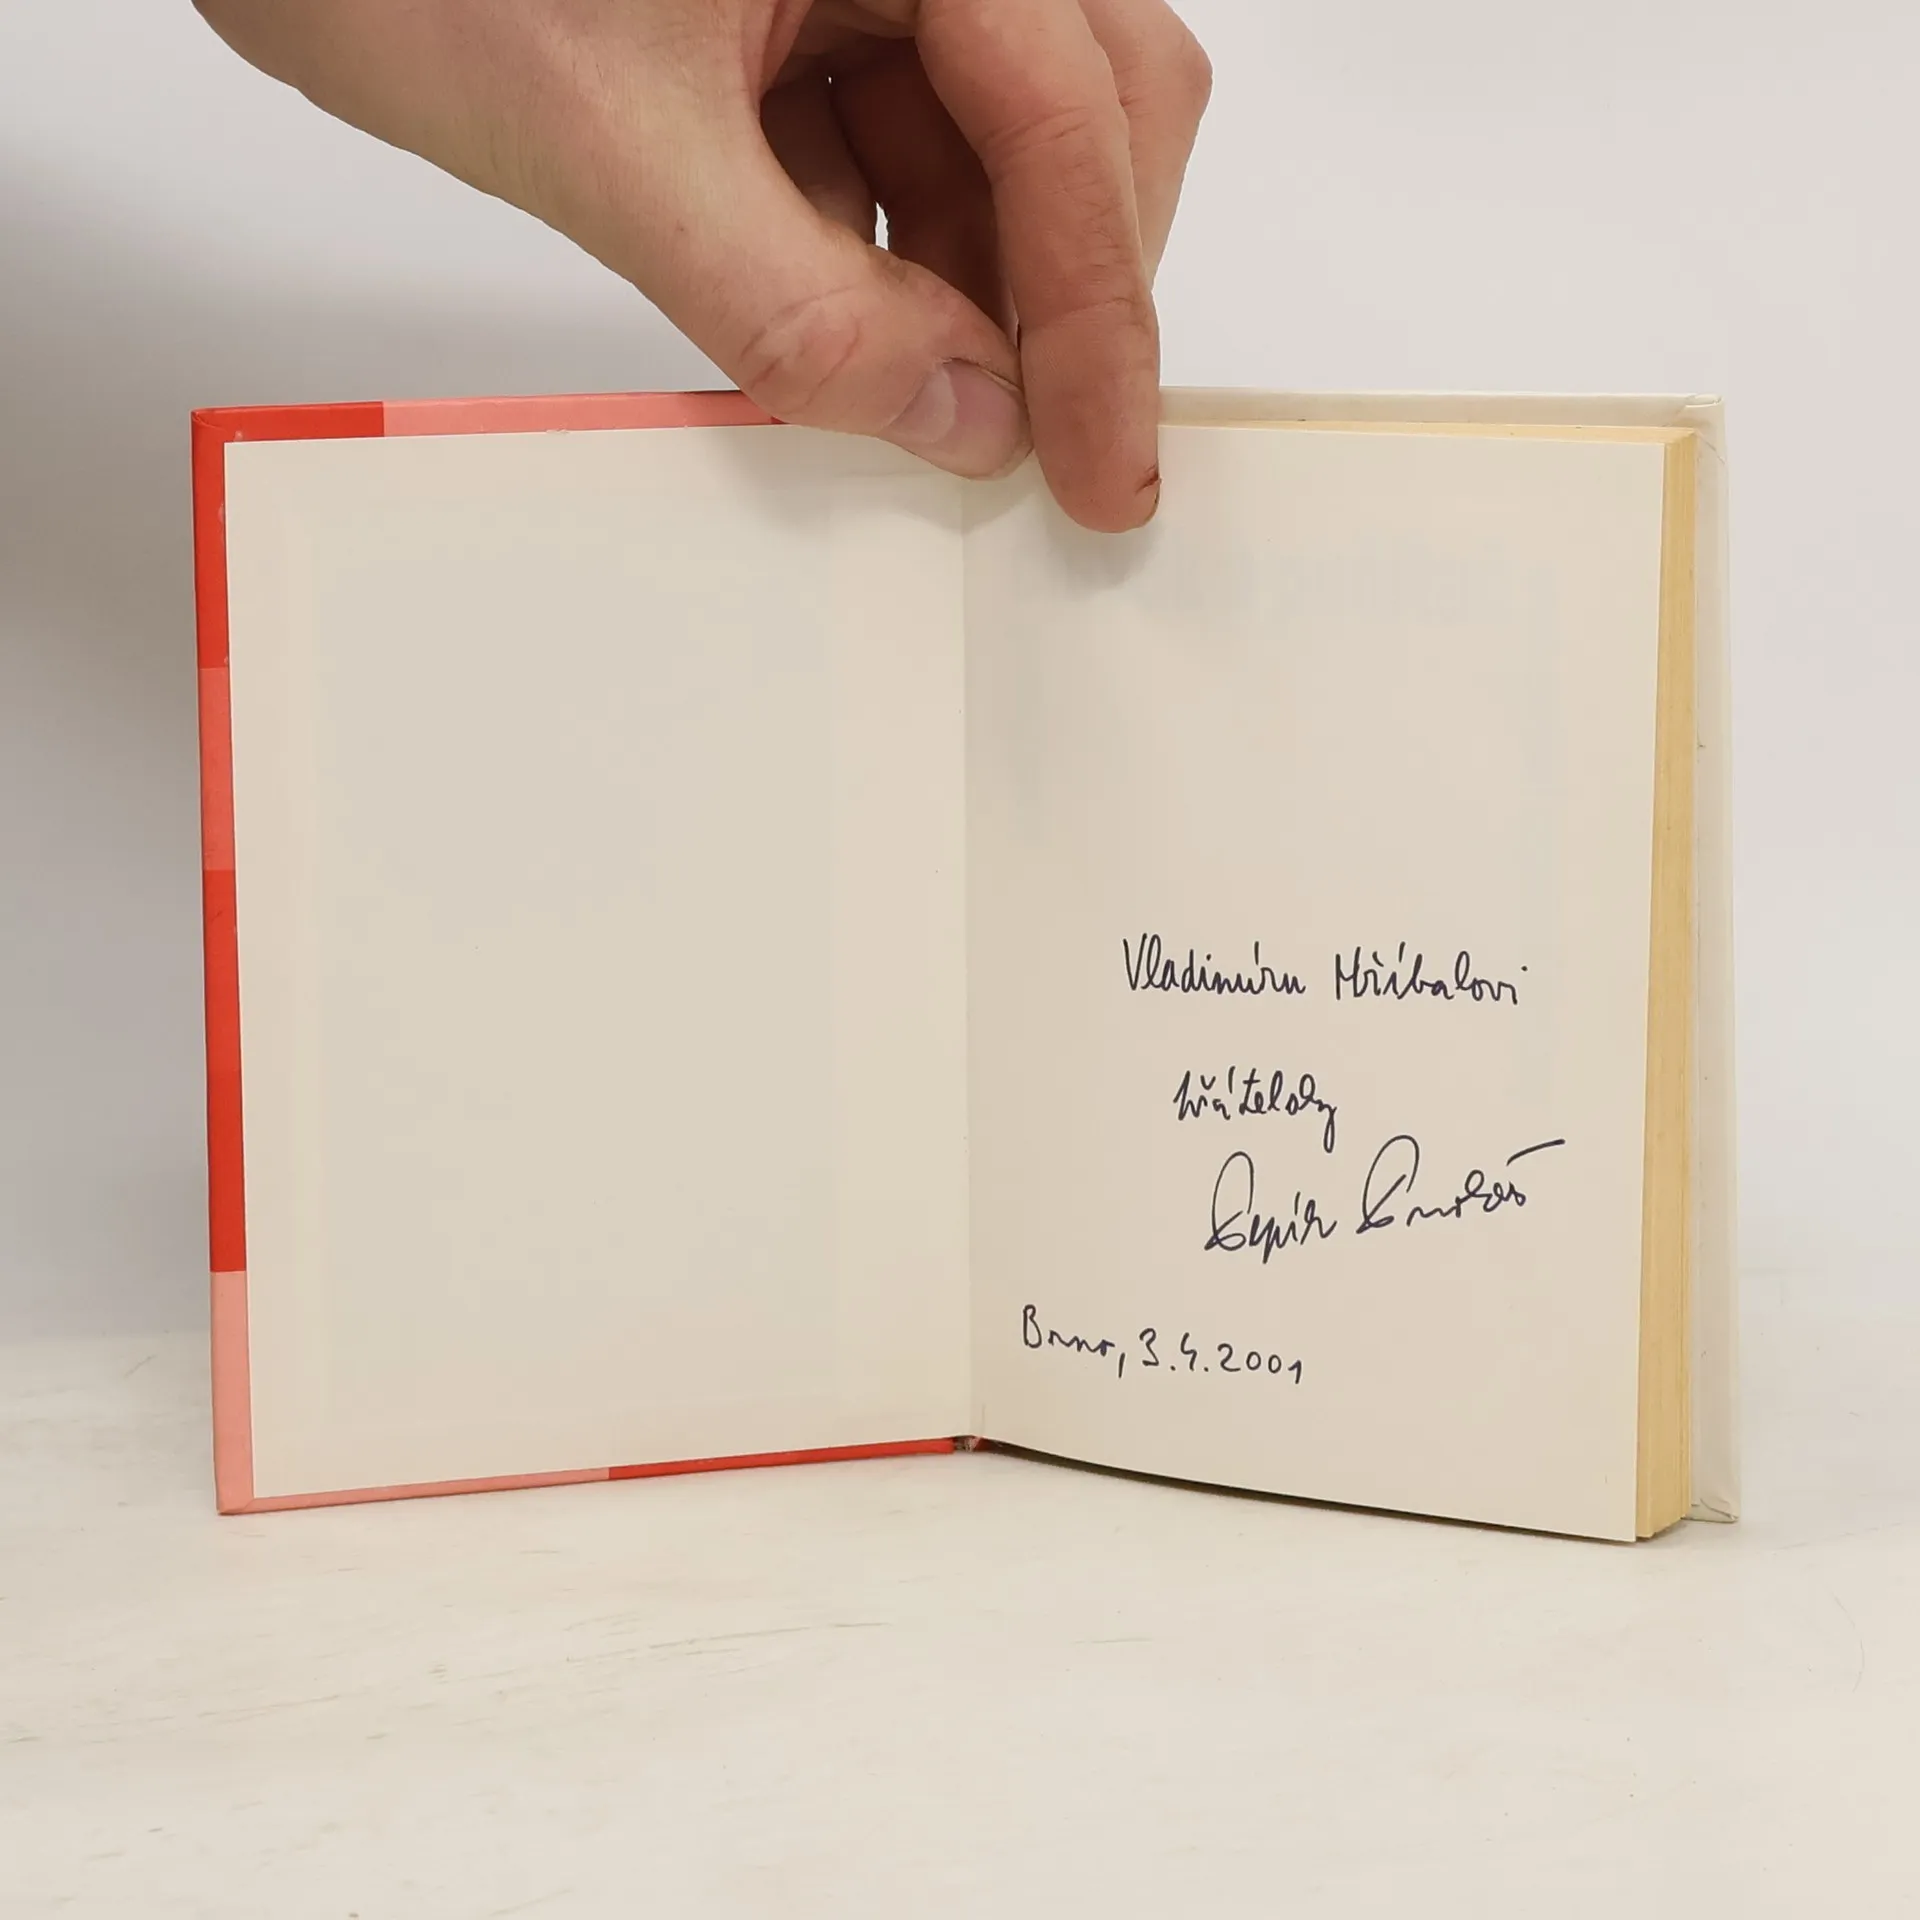 Vladimíru Hříbalovi
přátelsky
Brno, 3.4.2001